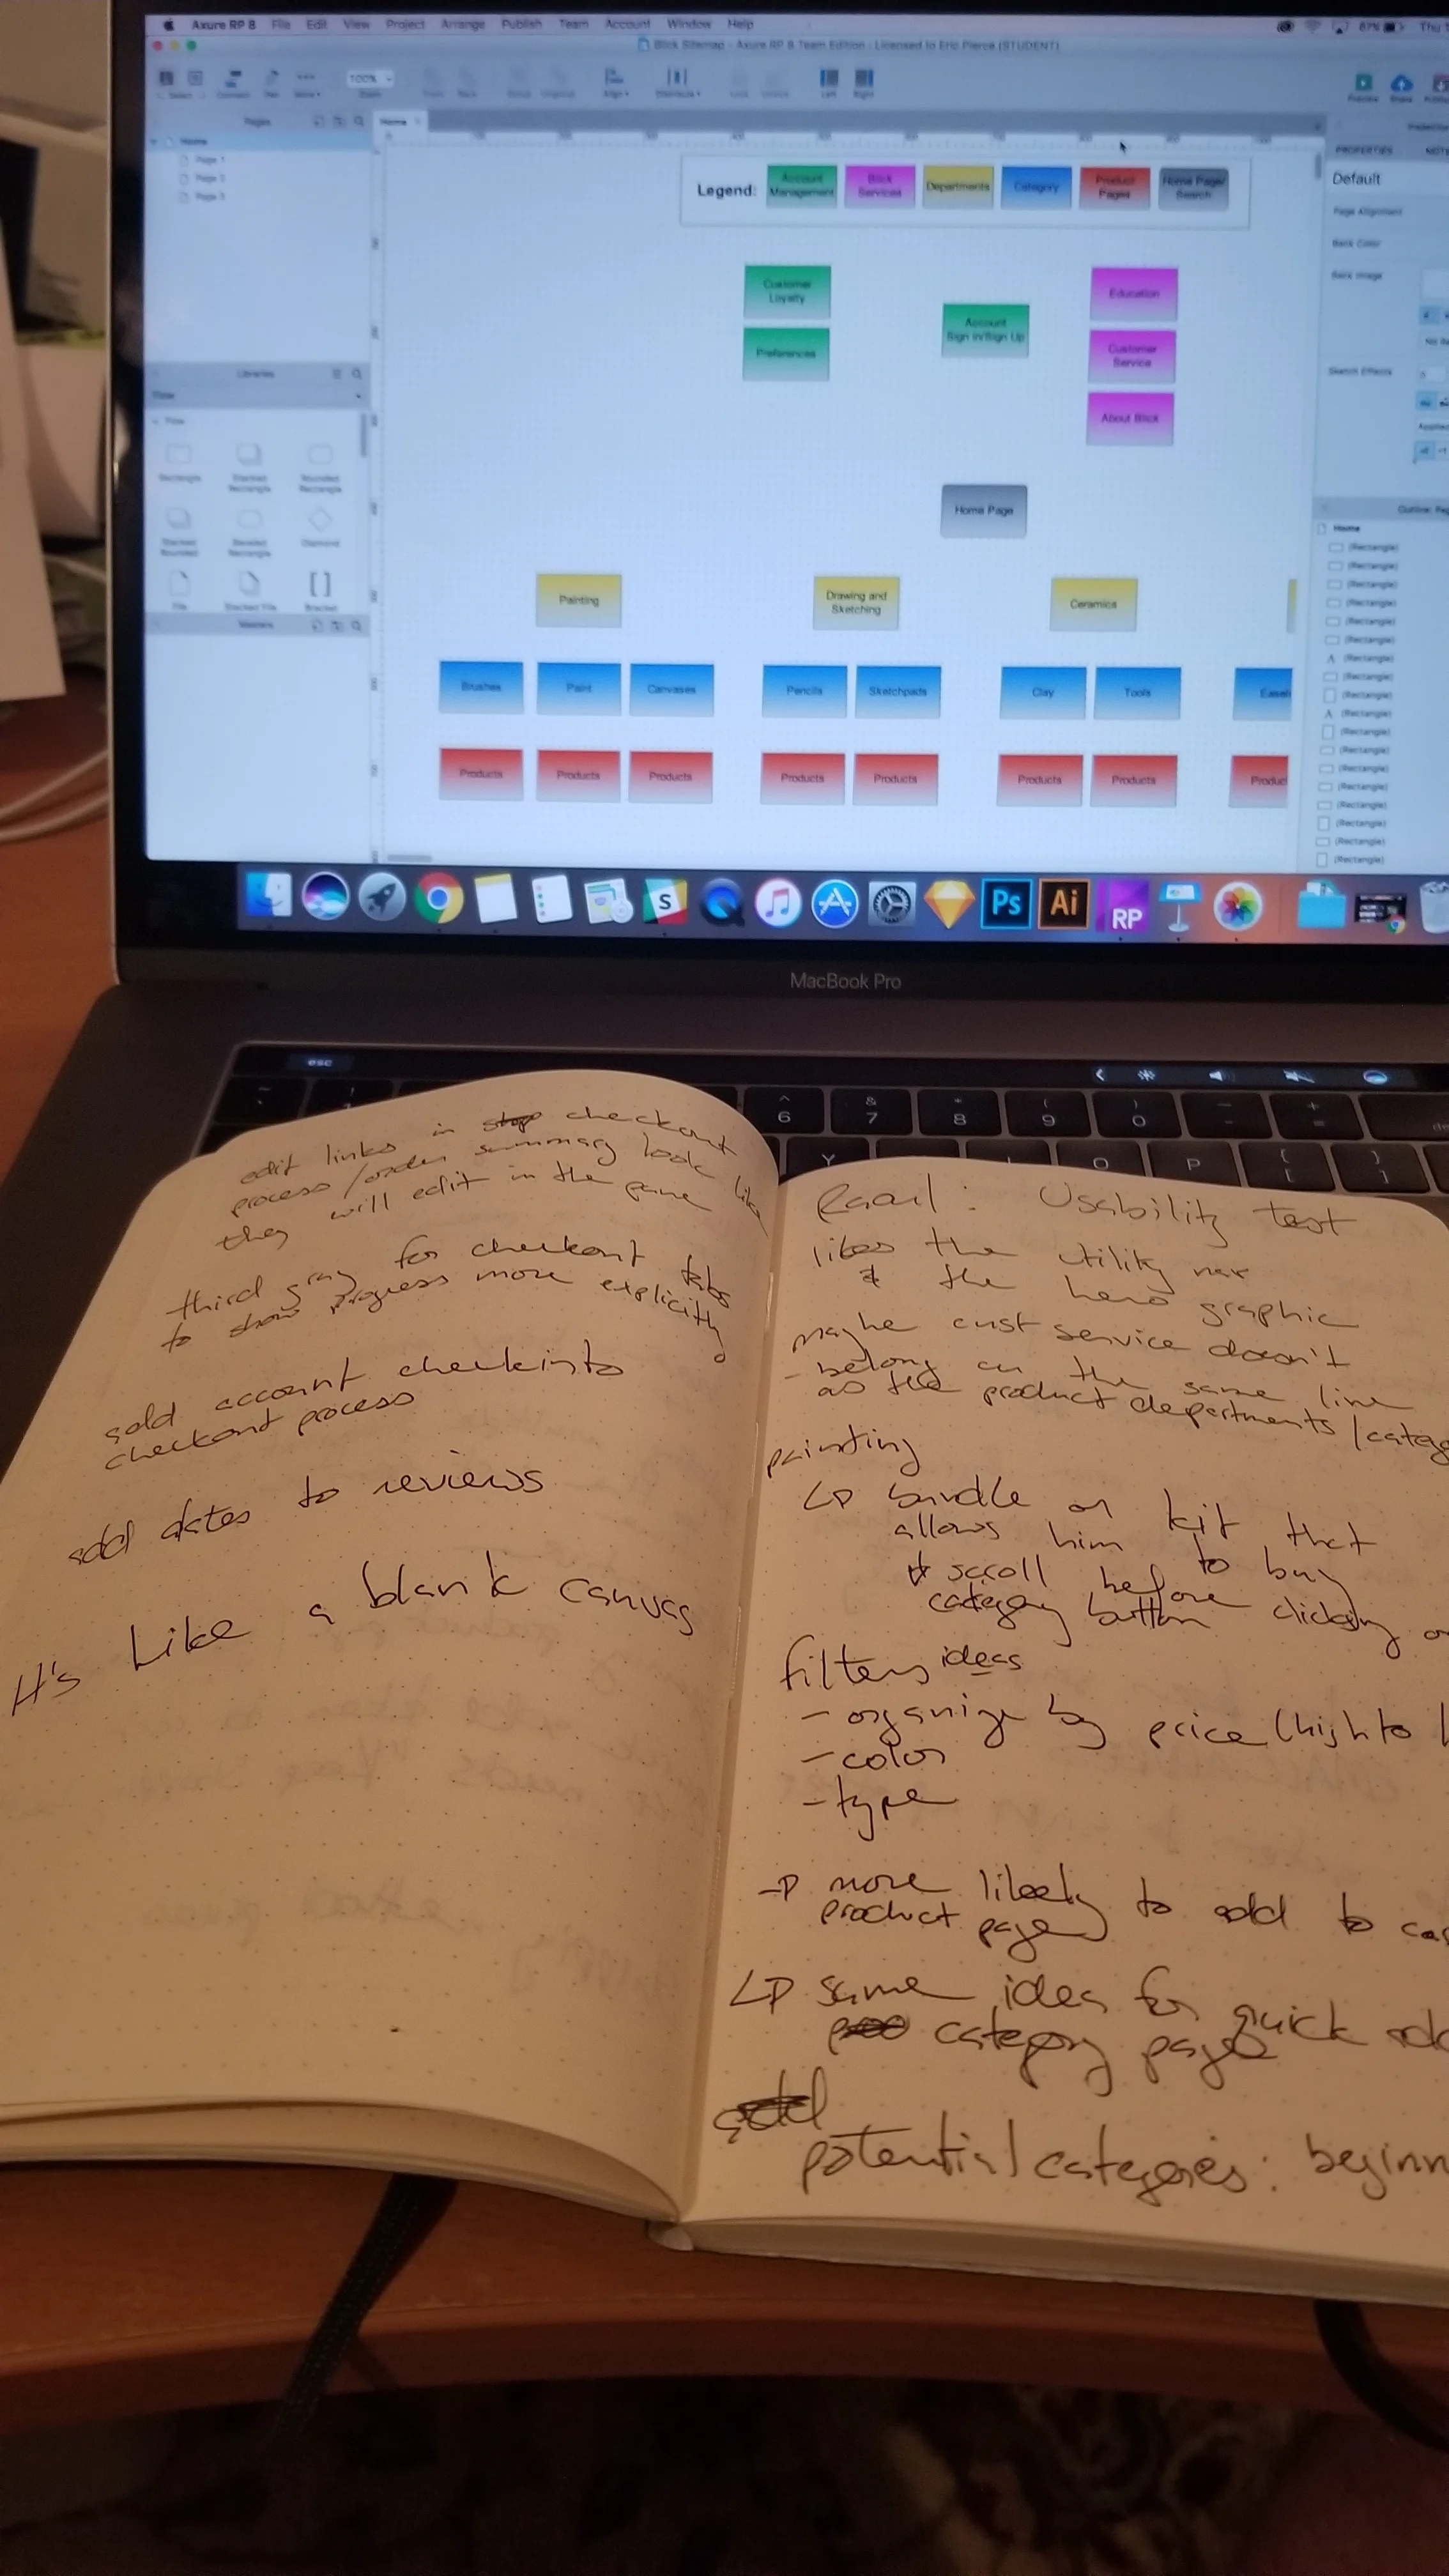 Axure RP 8 File Edit View Project Arrange Publish Team Account Window Help 67% Thu
Blick Sitemap - Axure RP 8 Team Edition : Licensed to Eric Pierce (STUDENT)
100%
Pages
Home
Page 1
Page 2
Page 3
Home
Legend:
Account Management
Blick Services
Departments
Category
Product Pages
Home Page/ Search
PROPERTIES
Default
Page Alignment
Back Color
Back Image
Sketch Effects
Customer
Loyalty
Preferences
Account
Sign in/Sign Up
Education
Customer
Service
About Blick
Home Page
Libraries
Flow
Flow
Rectangle
Stacked Rectangle
Rounded Rectangle
Stacked Rounded
Beveled Rectangle
Diamond
File
Stacked File
Bracket
Masters
Painting
Drawing and
Sketching
Ceramics
Brushes Paint Canvases Pencils Sketchpads Clay Tools Easels
Products Products Products Products Products Products Products Produc
Home
(Rectangle)
(Rectangle)
(Rectangle)
(Rectangle)
(Rectangle)
(Rectangle)
(Rectangle)
(Rectangle)
(Rectangle)
(Rectangle)
(Rectangle)
(Rectangle)
(Rectangle)
(Rectangle)
(Rectangle)
(Rectangle)
(Rectangle)
(Rectangle)
S
Ps
Ai
RP
MacBook Pro
esc
^ & * ( ) _ +
6 7 8 9 0 - =
Y O P { }
[ ]
edit links in checkout
process/order summary look like
they will edit in the pane
third gray for checkout tabs
to show progress more explicitly
add account checkinto
checkout process
add dates to reviews
It's Like a blank canvas
Usability test
likes the utility nav
& the hero graphic
maybe cust service doesn't
- belong on the same line
as the product departments/categ
painting
bundle or kit that
allows him to buy
scroll before clicking on
category button
filters ideas
- organize by price (high to l
- color
- type
→ more likely to add to car
product page
same idea for quick add
category page
add
potential categories: beginn